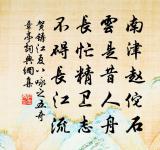 南津赵倥石
云是昔人舟
长忙精卫志
不碍长江流
贺铸江夏八咏之五奇
章亭词典网集